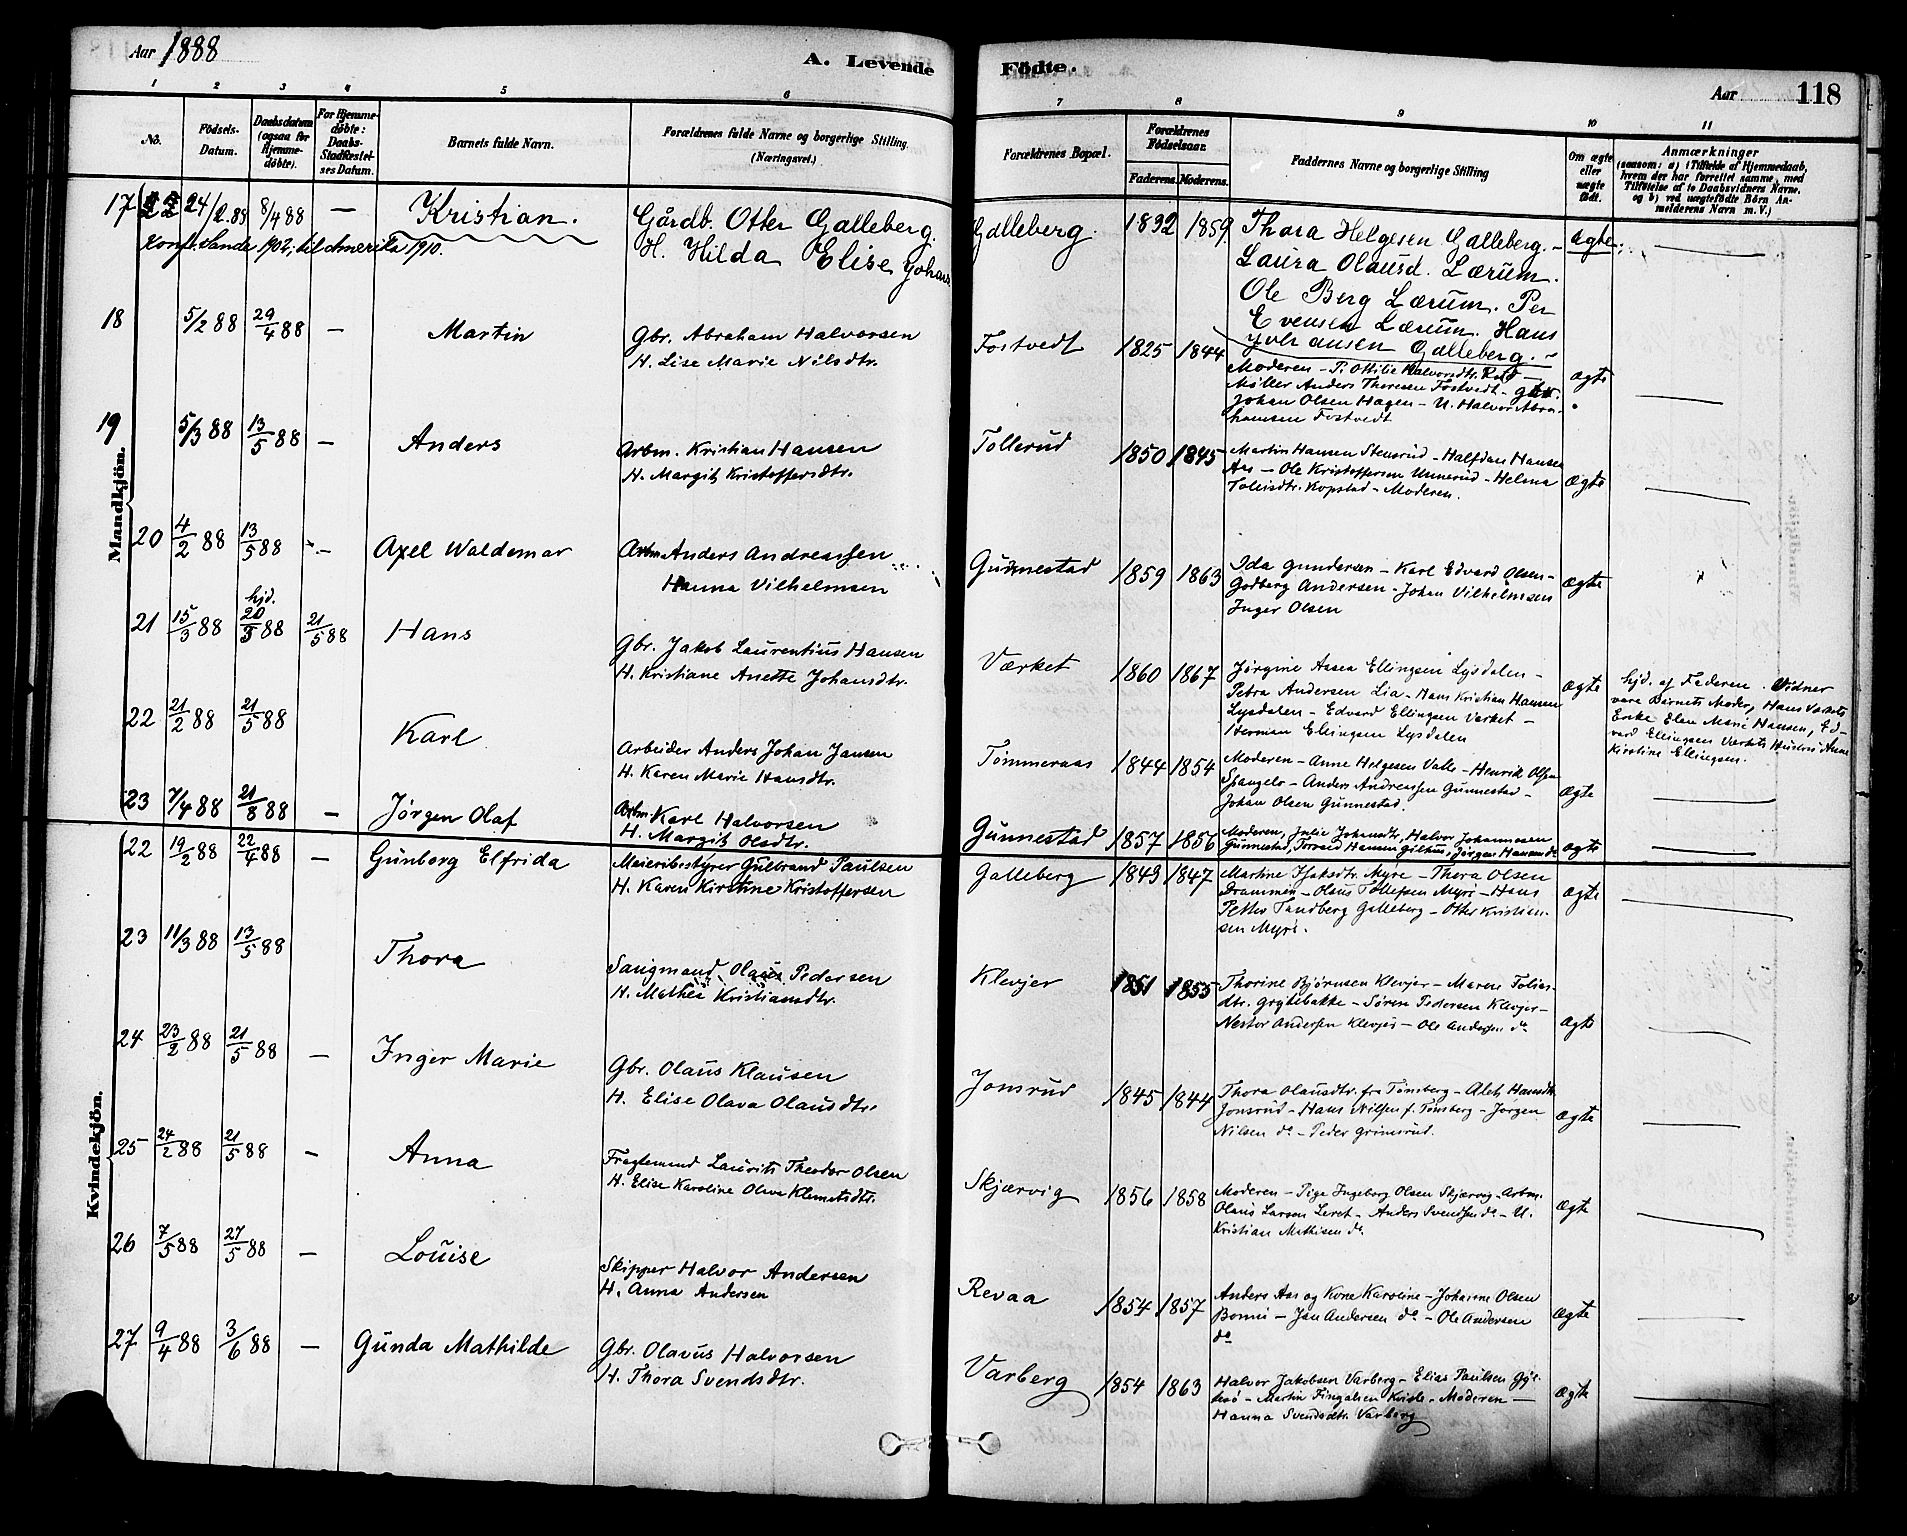 Aar 1888
A. Levende Födte.
Aar 118
1 2 3 4 5 6 7 8 9 10 11
No.
Födsels-Datum.
Daabsdatum (ogsaa for Hjemmedöbte).
For Hjemmedøbte: Daabs-Stadfæstelses Datum.
Barnets fulde Navn.
Forældrenes fulde Navne og borgerlige Stilling (Næringsvei.)
Forældrenes Bopæl.
Forældrenes Födselsaar.
Faderens. Moderens.
Faddernes Navne og borgerlige Stilling
Om ægte eller uægte födt.
Anmærkninger
(saasom: a) i Tilfælde af Hjemmedaab, hvem der har forrettet samme, med Tilföielse af to Daabsvidners Navne, og b) ved uægtefödte Börn Anmelderens Navn m. V.)
Mandkjön.
17 24/2 88 8/4 88 — Kristian.
Konf. Sande 1902, til Amerika 1910.
Gårdb. Otter Galleberg.
H. Hilda Elise Johans
Galleberg. 1832 1859.
Thora Helgesen Galleberg. –
Laura Olausd. Lærum.
Ole Berg Lærum. Per
Evensen Lærum. Hans
Galleberg. –
ægte.
18 5/2 88 29/4 88 — Martin
Gbr. Abraham Halvorsen
H. Lise Marie Nilsdtr.
Fostvedt 1825 1844
Moderen – P. Ottilie Halvorsdtr.
Møller Anders Thoresen Fostvedt – Gbr.
Johan Olsen Hagen – U. Halvor Abra-
hamsen Fostvedt
ægte
19 5/3 88 13/5 88 — Anders
Arbm. Kristian Hansen
H. Margit Kristoffersdtr.
Tollerud 1850 1845
Martin Hansen Stensrud – Halfdan Hansen
Aas – Ole Kristoffersen Unnerud – Helma
Tollisdtr. Kopstad – Moderen.
Ægte
20 4/2 88 13/5 88 — Axel Waldemar
Arbm Anders Andreassen
Hanna Vilhelmsen
Gunnestad 1859 1863
Ida Gundersen – Karl Edvard Olsen –
Godberg Andersen – Johan Vilhelmsen
Inger Olsen
ægte
21 15/3 88 hjd. 20/3 88 21/5 88 Hans
Gbr. Jakob Laurentius Hansen
H. Kristiane Anette Johansdtr.
Værket 1860 1867
Jørgine Aasea Ellingsen Lysdalen –
Petra Andersen Lia – Hans Kristian Hansen
Lysdalen – Edvard Ellingsen Værket –
Herman Ellingsen Lysdalen
Ægte
hjd. af Faderen. Vidner
vare Barnets Moder, Hans Værkets
Enke Elen Marie Hansen, Ed-
vard Ellingsen Værkets Hustru Anne
Kirstine Ellingsen.
22 21/2 88 21/5 88 Karl
Arbeider Anders Johan Jansen
H. Karen Marie Hansdtr.
Tømmeraas 1844 1854
Moderen – Anne Helgesen Valle – Henrik Olsen
Spangelo – Anders Andreassen Gunnestad –
Johan Olsen Gunnestad.
Ægte
23 7/4 88 21/8 88 — Jørgen Olaf
Arbm Karl Halvorsen
H. Margit Olsdtr.
Gunnestad 1857 1856
Moderen, Julie Johansdtr, Halvor Johannesen
Gunnestad, Torvald Hansen Gilhus, Jørgen Hansen do
ægte
Kvindekjön.
22 19/2 88 22/4 88 — Gunborg Elfrida
Meieribestyrer Gulbrand Paulsen
H. Karen Kirstine Kristoffersen
Galleberg 1843 1847
Martine Isaksdtr Myre – Thora Olsen
Drammen – Olaus Tollefsen Myre – Hans
Petter Sandberg Galleberg – Otter Kristian-
sen Myre.
ægte
23 11/3 88 13/5 88 Thora
Saugmand Olaus Pedersen
H. Mathea Kristiansdtr.
Klevjer 1851 1855
Thorine Bjørnsen Klevjer – Maren Tolias-
dtr. Grytebakke – Søren Pedersen Klevjer –
Nestor Andersen Klevjer – Ole Andersen do
Ægte
24 23/2 88 21/5 88 — Inger Marie
Gbr. Olaus Klausen
H. Elise Olava Olausdtr.
Jonsrud 1845 1844
Thora Olausdtr. fra Tønsberg – Alet Hansdtr
Jonsrud – Hans Nilsen f. Tønsberg – Jørgen
Nilsen do – Peder Grimsrud.
Ægte
25 24/2 88 21/5 88 — Anna
Fragtemand Laurits Theodor Olsen
H. Elise Karoline Oleva Klemetsdtr.
Skjærvig 1856 1858
Moderen – Pige Ingeborg Olsen Skjærvig – Arbm.
Olaus Larsen Leret – Anders Svendsen do – U.
Kristian Mathisen do
Ægte
26 7/5 88 27/5 88 — Louise
Skipper Halvor Andersen
H. Anna Andersen
Revaa 1854 1857
Anders Aas og Kone Karoline – Johanne Olsen
– Jan Andersen do – Ole Andersen
do
Ægte
27 9/4 88 3/6 88 — Gunda Mathilde
Gbr. Olavus Halvorsen
H. Thora Svendsdtr.
Varberg 1854 1863
Halvor Jakobsen Varberg – Elias Paulsen
– Martin – Moderen –
Hanna Svendsdtr. Varberg
Ægte